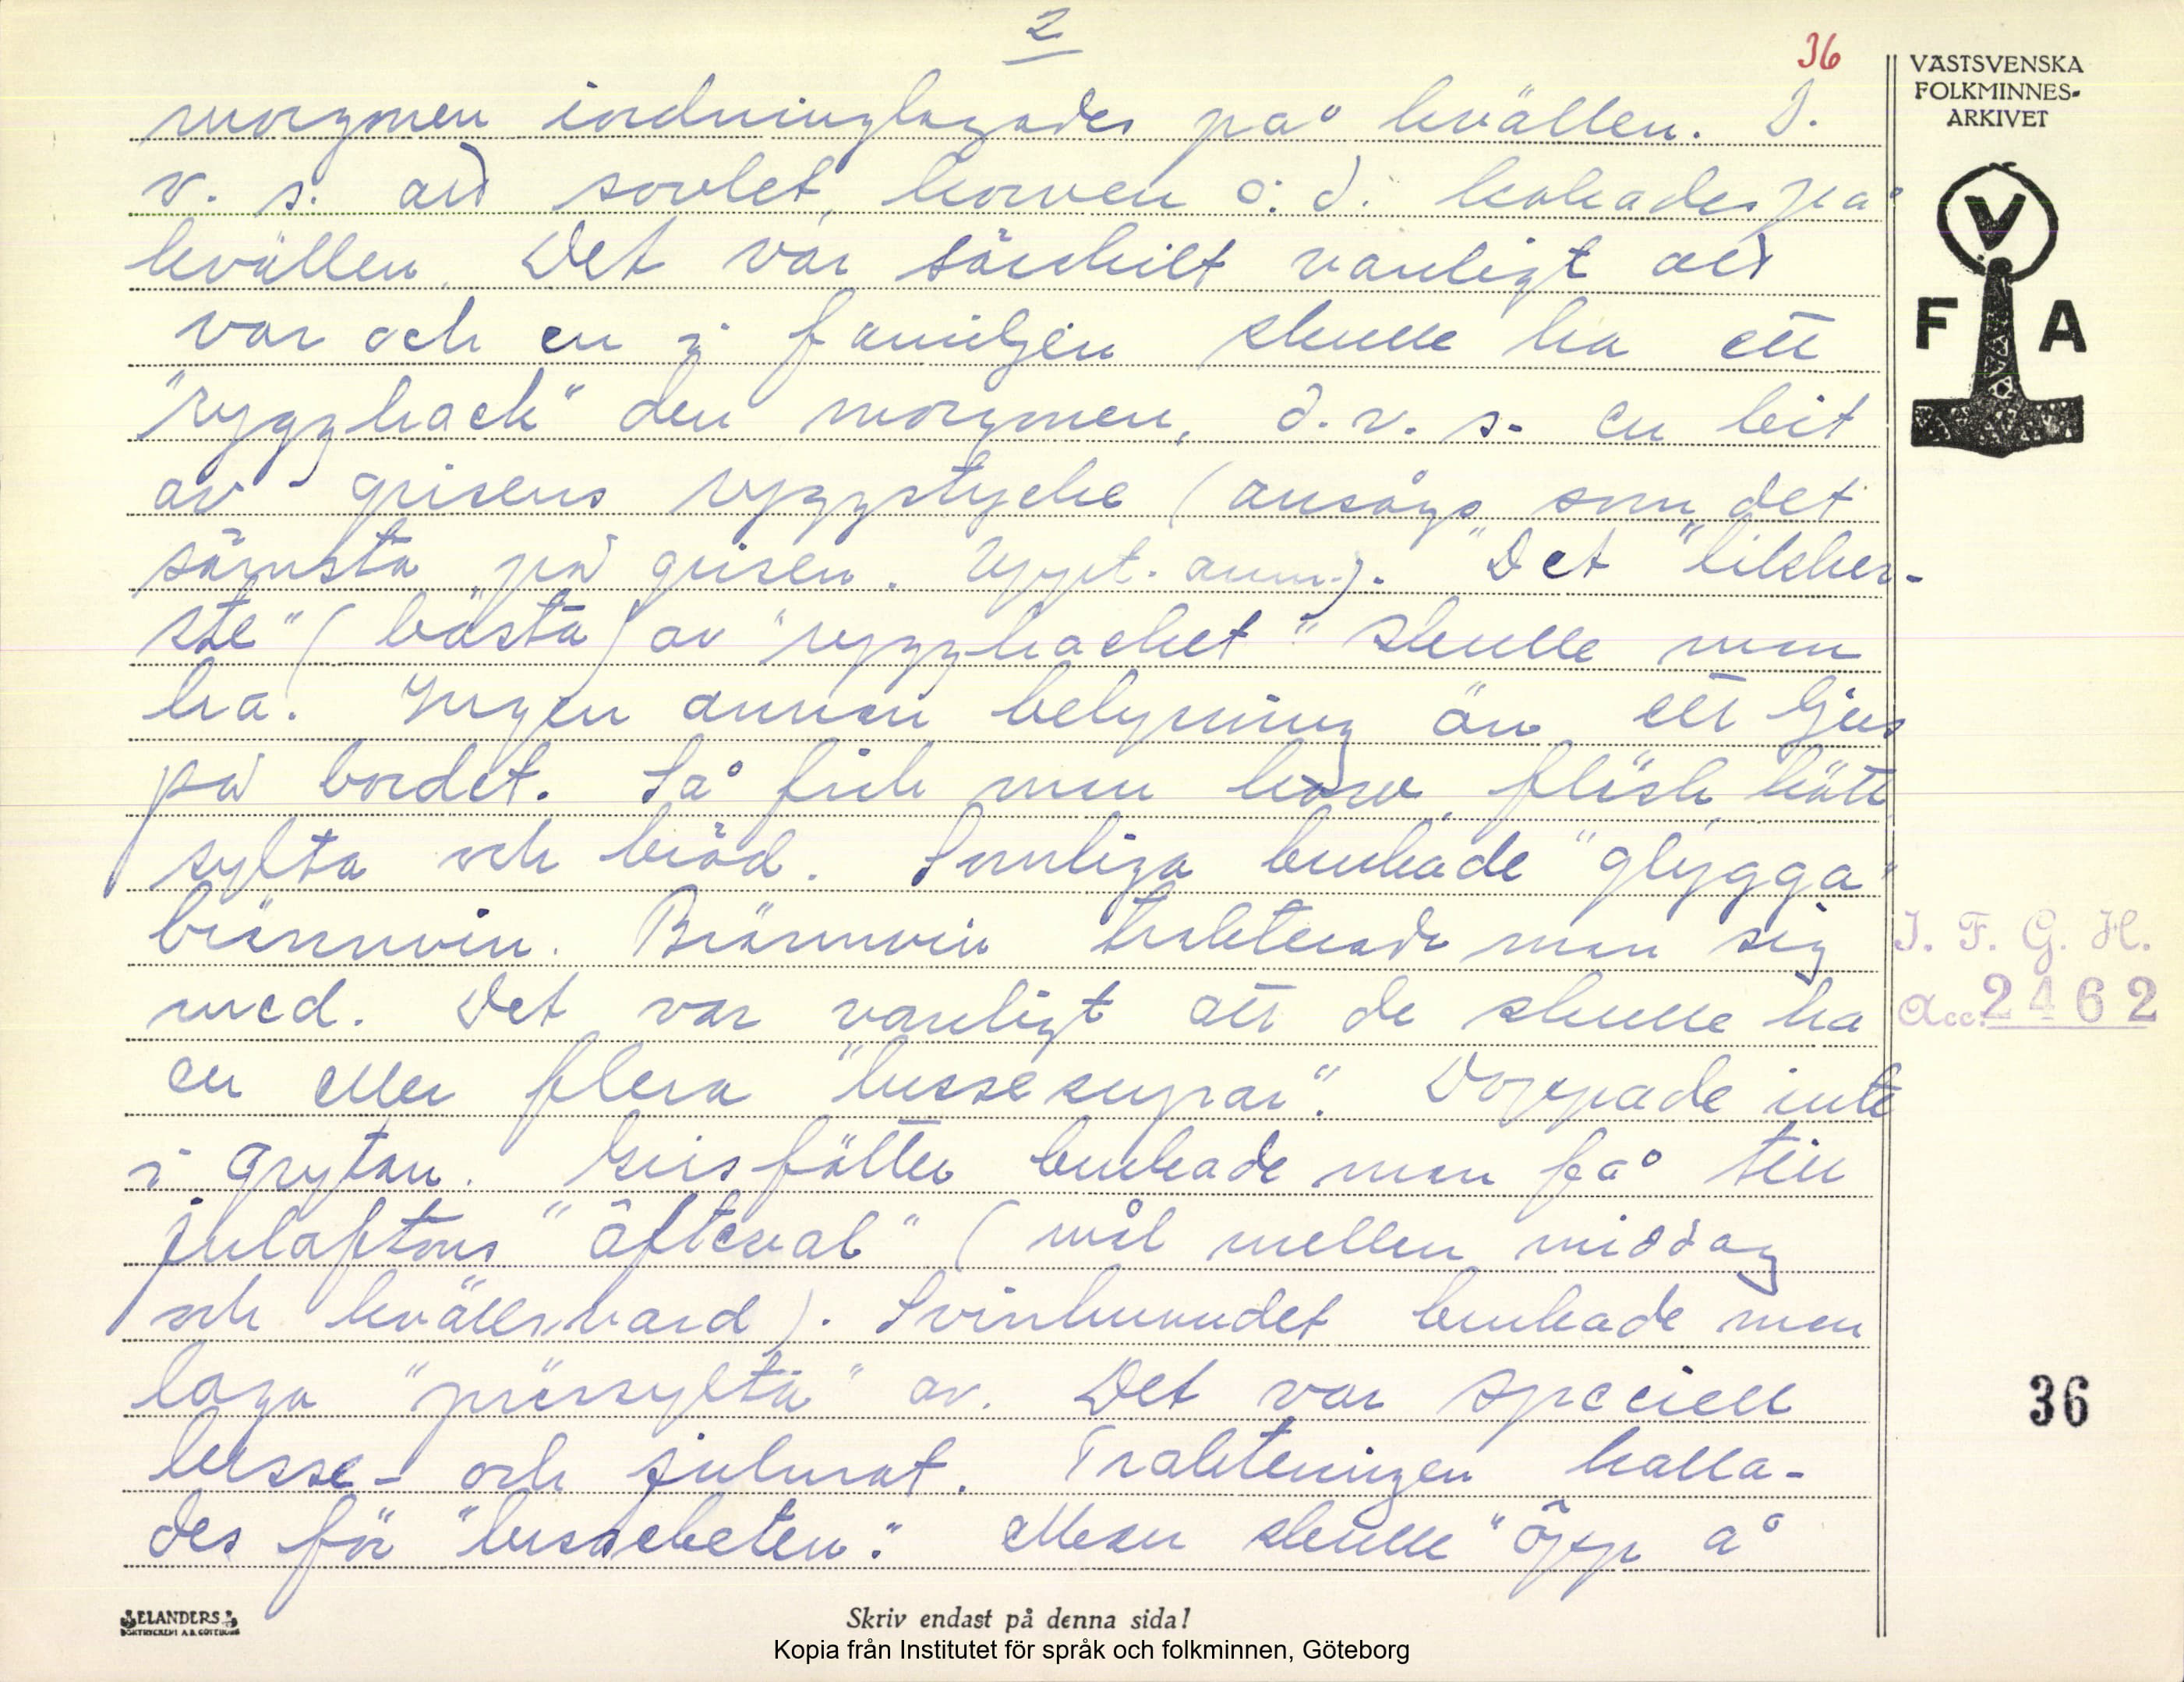 2
36
VÄSTSVENSKA
FOLKMINNES-
ARKIVET
morgonen iordninglagades på kvällen. D.
v. s. att sovlet, korven o. d. kokades på
kvällen. Det var särskilt vanligt att
var och en i familjen skulle ha ett
"rygghack" den morgonen, d.v.s. en bit
av grisens ryggstycke (ansågs som det
sämsta på grisen. Uppt. anm.). "Det "lilsker-
ste" (bästa) av "rygghacket" skulle man
ha. Ingen annan belysning än ett ljus
på bordet. Så fick man korv, fläsk, kött
sylta och bröd. Somliga brukade "glygga"
brännvin. Brännvin trakterade man sig
med. Det var vanligt att de skulle ha
en eller flera "lussesupar". Doppade inte
i grytan. Grisfötter brukade man få till
julaftons "äfteval" (mål mellan middag
och kvällsvard). Svinhuvudet brukade man
laga "pressylta" av. Det var speciell
lusse- och julmat. Trakteringen kalla-
des för "lussebeten". Man skulle "öpp å
V
F A
I. F. G. H.
Acc. 2462
36
ELANDERS
BOKTRYCKERI A.B. GÖTEBORG
Skriv endast på denna sida!
Kopia från Institutet för språk och folkminnen, Göteborg